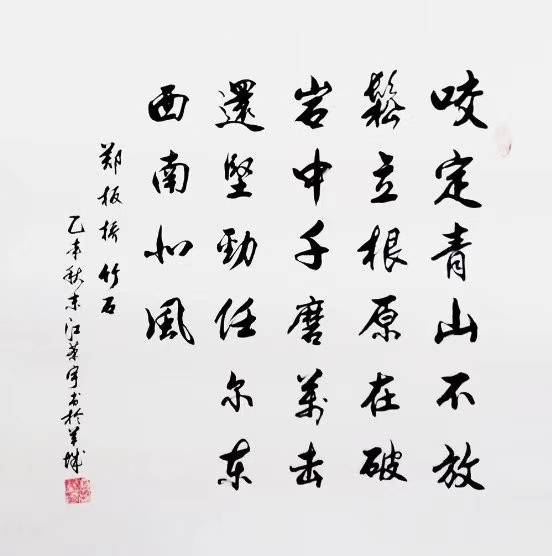 咬定青山不放
鬆立根原在破
岩中千磨萬击
還堅勁任尔東
西南北風
郑板桥竹石
乙未秋东江宇书於羊城